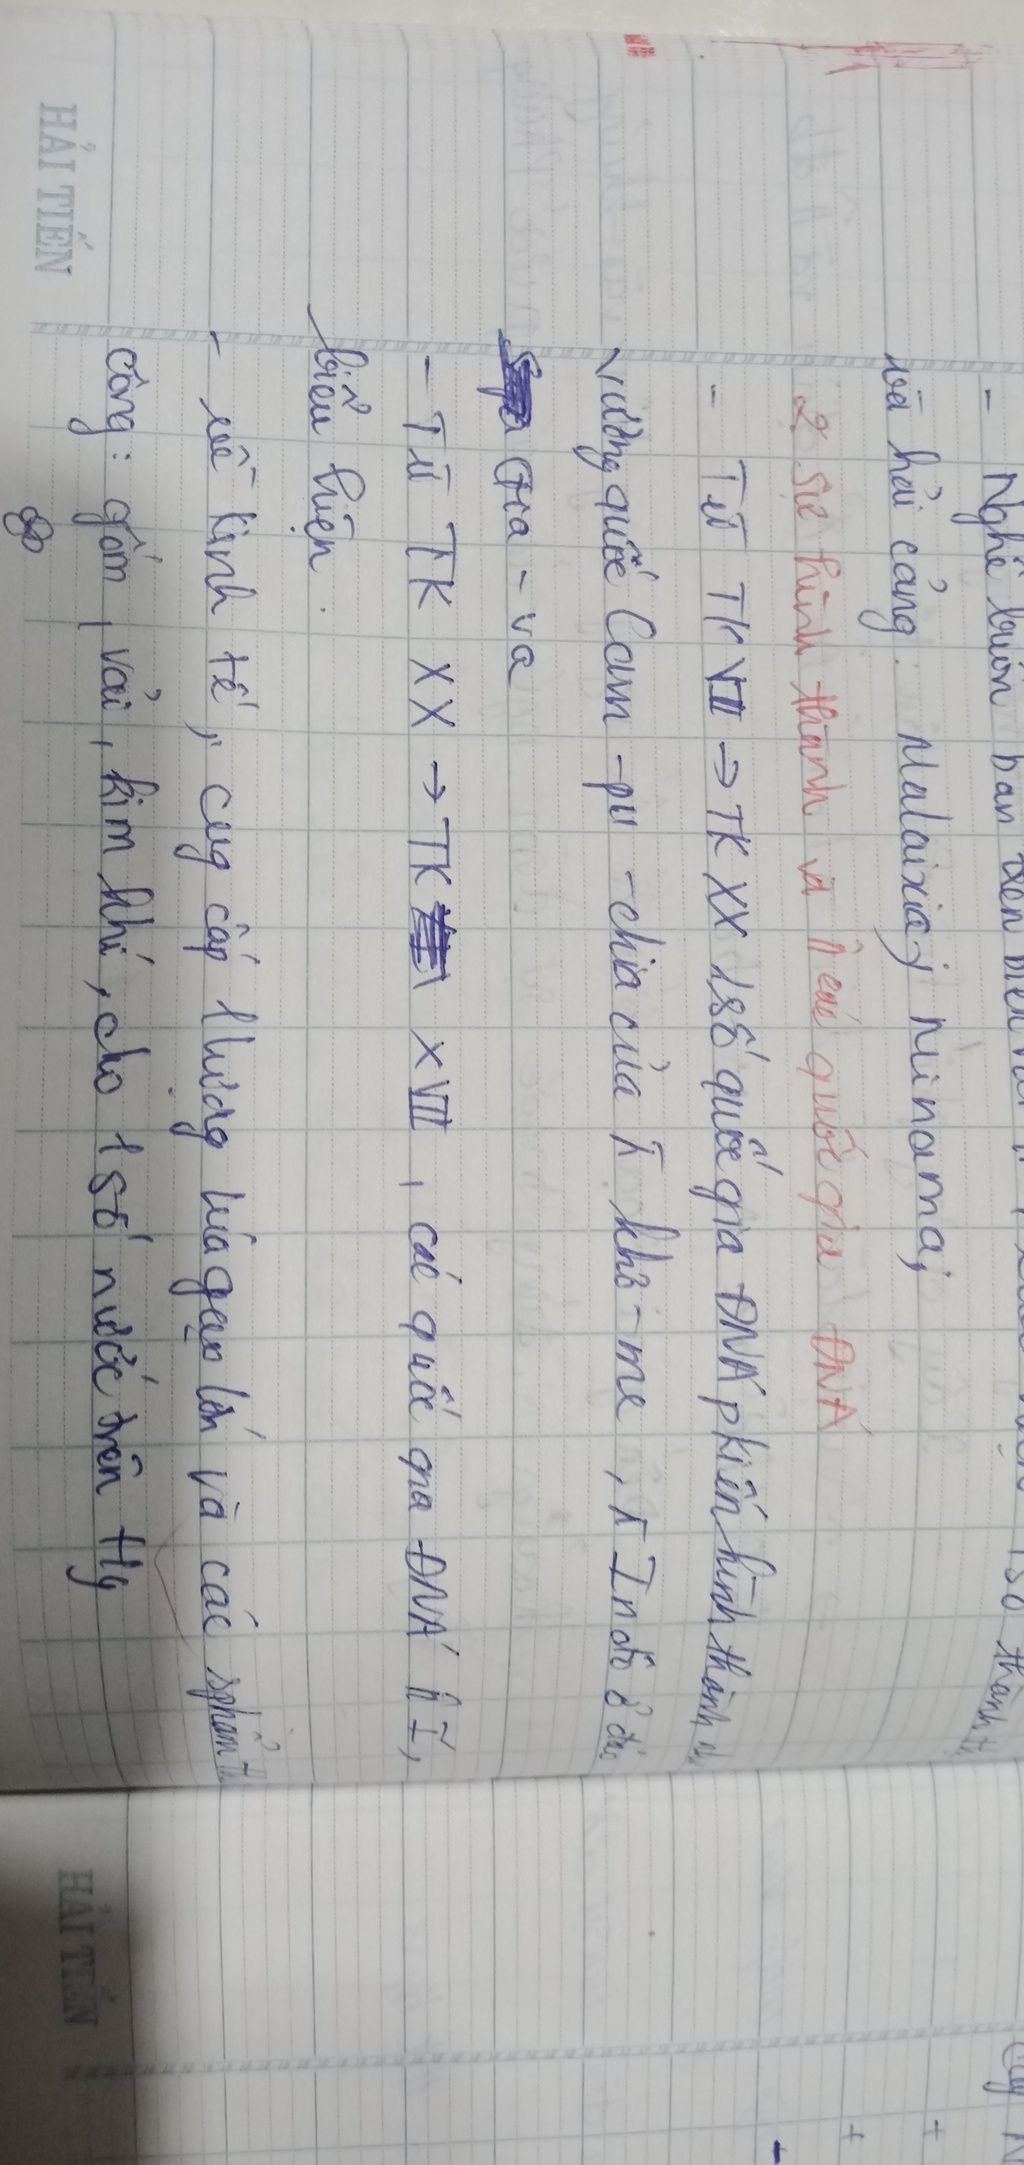 - Nghề buôn bán
và hải cảng: Malaixia; Minama;
2. Sự hình thành và các quốc gia ĐNÁ
- Từ TK VII → TK XX 1 số quốc gia ĐNÁ pkiến hình thành
Vương quốc Cam-pu-chia của khơ-me, Inđô ở đảo
Gia-va
- Từ TK XX → TK XVIII, các quốc gia ĐNÁ
biểu hiện.
- về kinh tế, cug cấp 1 lượng lúa gạo lớn và các sphẩm
công: gốm, vải, kim khí, cho 1 số nước trên
HẢI TIẾN
HẢI TIẾN